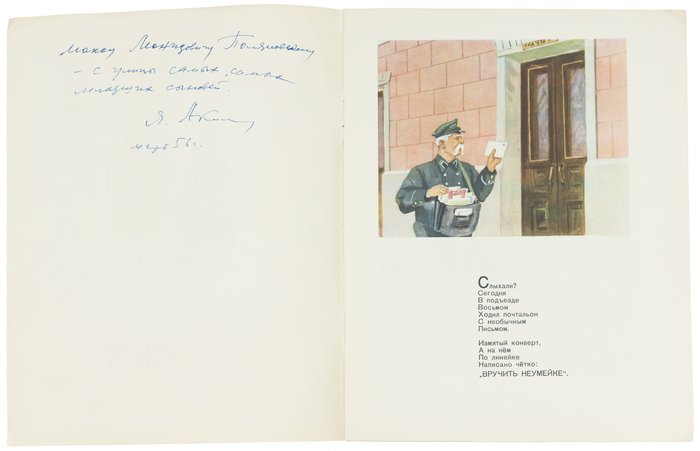 Максу Леонидовичу Поляновскому
– с улицы самых, самых
младших сыновей.
Я. Аким
март 56 г.
Слыхали?
Сегодня
В подъезде
Восьмом
Ходил почтальон
С необычным
Письмом.
Измятый конверт,
А на нём
По линейке
Написано чётко:
„ВРУЧИТЬ НЕУМЕЙКЕ“.